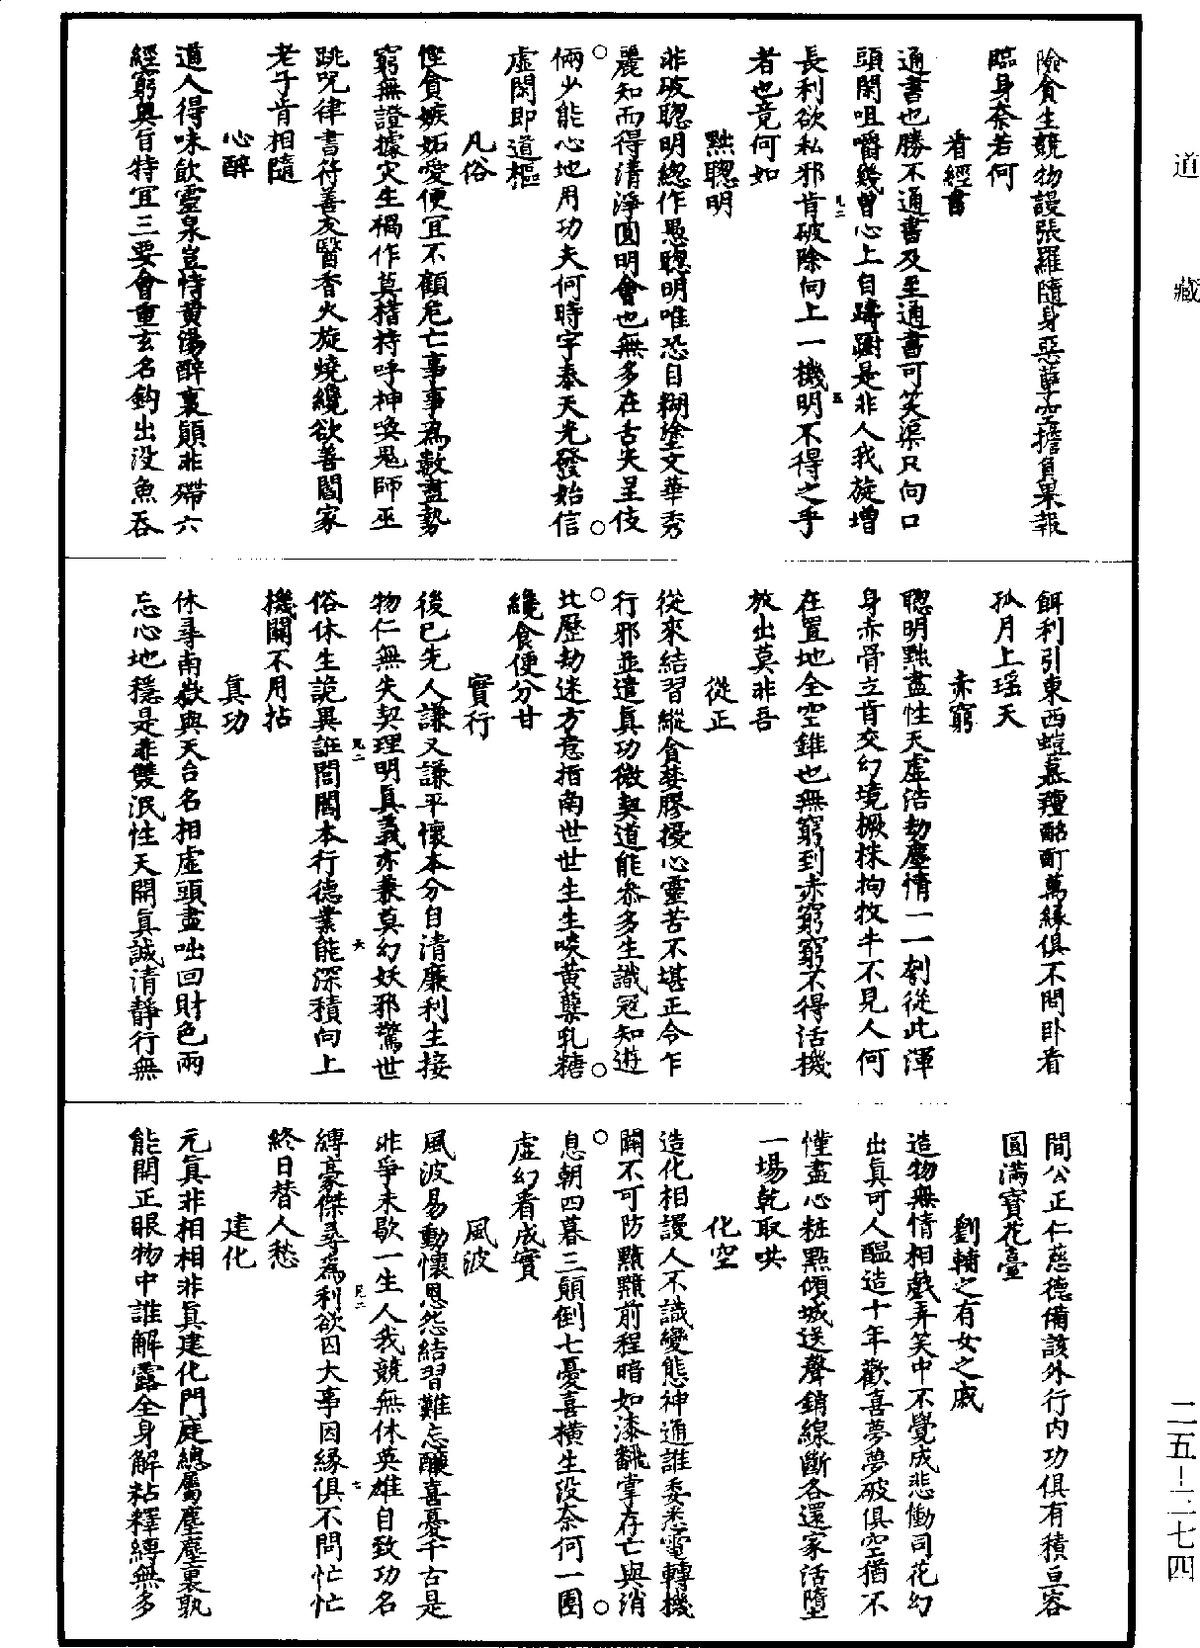 道藏
險貪生競物謾張羅隨身惡業空擔負果報
臨身奈若何
看經書
通書也勝不通書及至通書可笑渠只向口
頭閑咀嚼幾曾心上自躊躕是非人我旋增
長利欲私邪肯破除向上一機明不得之乎
者也竟何如
黜聰明
非破聰明總作愚聰明唯恐自糊塗文華秀
麗知而得清淨圓明會也無多在舌尖呈伎
倆少能心地用功夫何時宇泰天光發始信
虛閑即道樞
凡俗
慳貪嫉妬愛便宜不顧危亡事事為數盡勢
窮無證據灾生禍作莫撘持呼神喚鬼師巫
跳呪律書符善友醫香火旋燒纔欲善閻家
老子肯相隨
心醉
道人得味飲靈泉豈恃黃湯醉裏顛非殢六
經窮奧旨特宜三要會重玄名鈎出沒魚吞
餌利引東西螘慕羶酩酊萬緣俱不問卧看
孤月上瑤天
赤窮
聰明黜盡性天虛浩劫塵情一一刳從此渾
身赤骨立肯交幻境橛株拘牧牛不見人何
在置地全空錐也無窮到赤窮窮不得活機
放出莫非吾
從正
從來結習縱貪婪膠擾心靈苦不堪正令乍
行邪並遣真功微契道能叅多生識冦知遊
北歷劫迷方意指南世世生生啖黃蘗乳糖
纔食便分甘
實行
後已先人謙又謙平懷本分自清廉利生接
物仁無失契理明真義亦兼莫幻妖邪驚世
俗休生詭異誑閭閻本行德業能深積向上
機關不用拈
真功
休尋南嶽與天台名相虛頭盡咄回財色兩
忘心地穩是非雙泯性天開真誠清靜行無
間公正仁慈德備該外行內功俱有積亘容
圓滿寶花臺
劉輔之有女之戚
造物無情相戲弄笑中不覺成悲慟司花幻
出真可人醞造十年歡喜夢夢破俱空猶不
懂盡心粧點傾城送聲銷線斷各還家活墮
一場乾取哄
化空
造化相謾人不識變態神通誰委悉電轉機
關不可防黰黰前程暗如漆翻掌存亡與消
息朝四暮三顛倒七憂喜橫生没奈何一團
虛幻看成實
風波
風波易動懷恩怨結習難忘釀喜憂千古是
非爭未歇一生人我競無休英雄自致功名
縛豪傑尋為利欲囚大事因緣俱不問忙忙
終日替人愁
建化
元真非相相非真建化門庭總屬塵塵裏孰
能開正眼物中誰解露全身解粘釋縛無多
二五-二七四